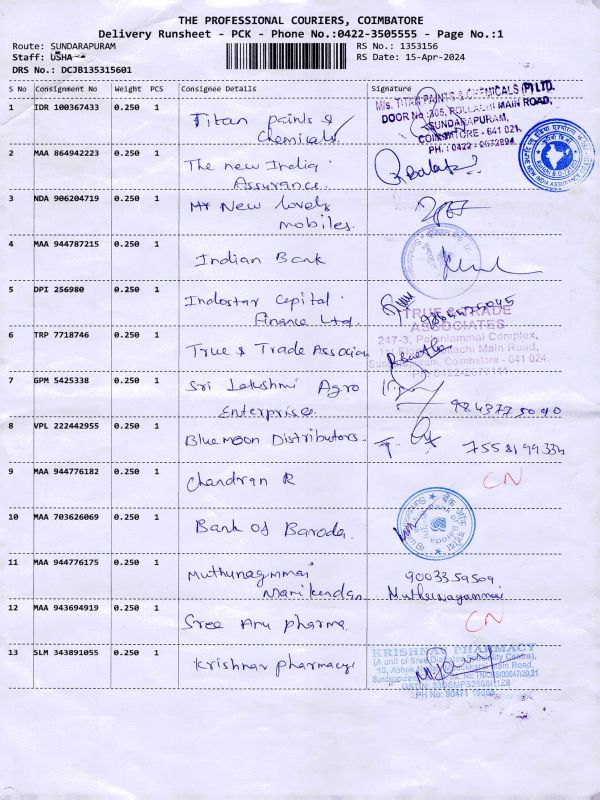 THE PROFESSIONAL COURIERS, COIMBATORE
Delivery Runsheet - PCK - Phone No.:0422-3505555 - Page No.:1
Route: SUNDARAPURAM
Staff: USHA
DRS No.: DCJB135315601
RS No.: 1353156
RS Date: 15-Apr-2024
S No Consignment No Weight PCS Consignee Details Signature
1 IDR 100367433 0.250 1 Titan paints &
Chemicals
M/s. TITAN PAINTS & CHEMICALS (P) LTD.
DOOR No :305, POLLACHI MAIN ROAD,
SUNDARAPURAM,
COIMBATORE - 641 021.
PH. : 0422 - 2672894
2 MAA 864942223 0.250 1 The new India
Assurance.
3 NDA 906204719 0.250 1 New lovely
mobiles.
4 MAA 944787215 0.250 1 Indian Bank
5 DPI 256980 0.250 1 Indostar Capital
Finance Ltd.
TRUE & TRADE
ASSOCIATES
247-3, Palaniammal Complex,
Pollachi Main Road,
Coimbatore - 641 024.
6 TRP 7718746 0.250 1 True & Trade Associa
7 GPM 5425338 0.250 1 Sri Lakshmi Agro
Enterprises.
8 VPL 222442955 0.250 1 Bluemoon Distributors.
9 MAA 944776182 0.250 1 Chandran R CN
10 MAA 703626069 0.250 1 Bank of Baroda.
11 MAA 944776175 0.250 1 Muthunagammai 9003359509
Manikandan
12 MAA 943694919 0.250 1 Sree Anu pharma. CN
13 SLM 343891055 0.250 1 Krishnar pharmacy
KRISHNA PHARMACY